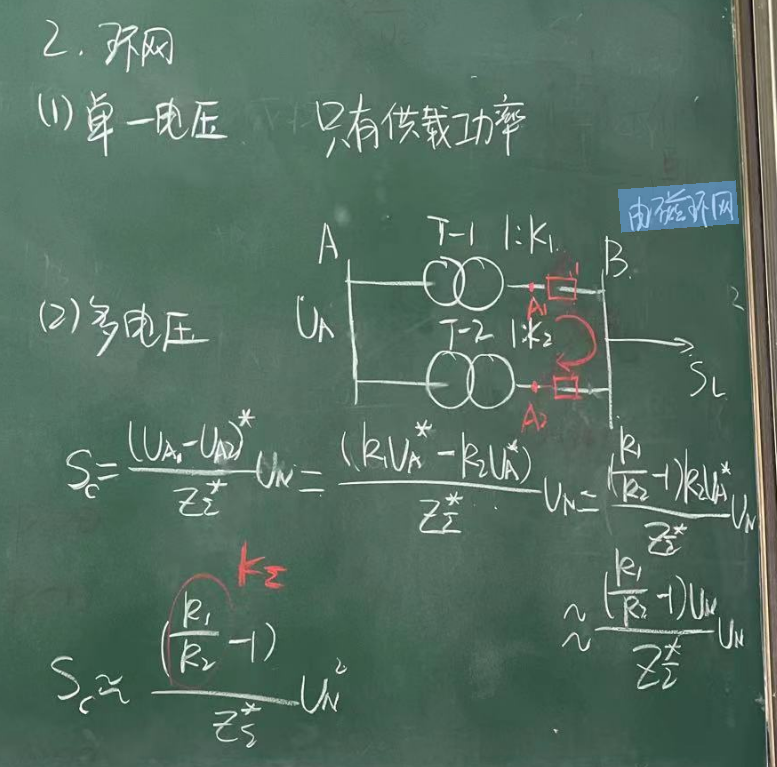 2. 环网
(1) 单一电压 只有供载功率
电磁环网
A T-1 1:k₁ B
(2) 多电压 U_A A₁ T-2 1:k₂
A₂ S_L
S_c = (U_A₁ - U_A₂)^* / Z_Σ^* U_N = (k₁U_A^* - k₂U_A^*) / Z_Σ^* U_N = (k₁/k₂ - 1)k₂U_A^* / Z_Σ^* U_N
k_Σ
≈ (k₁/k₂ - 1)U_N / Z_Σ^* U_N
S_c ≈ (k₁/k₂ - 1) / Z_Σ^* U_N²